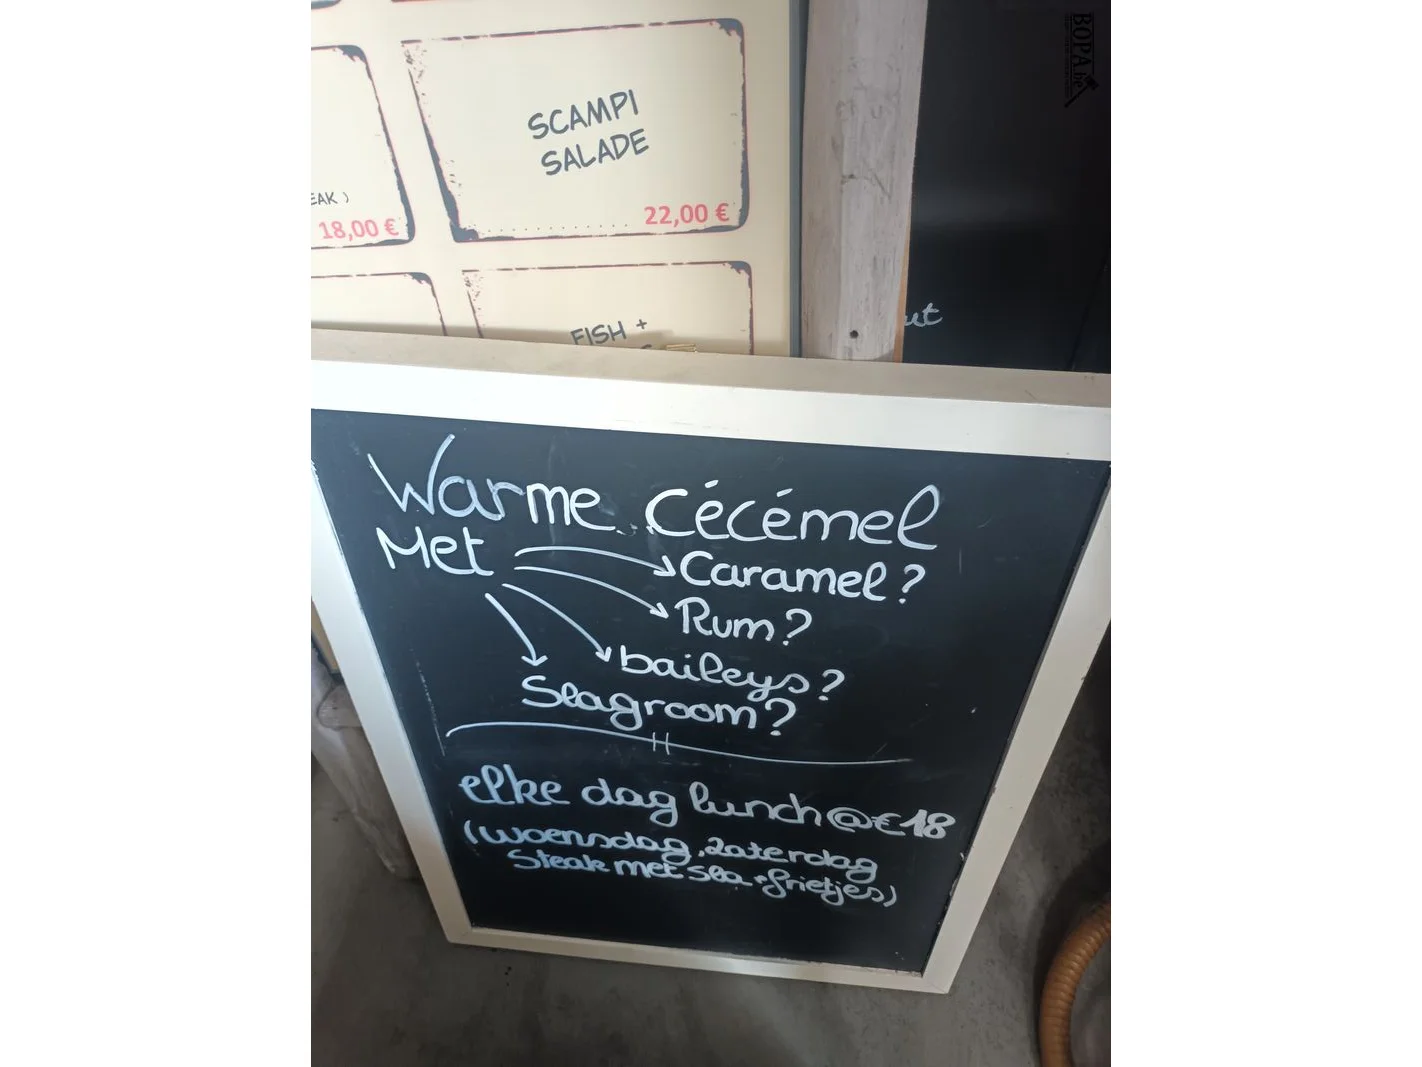 SCAMPI
SALADE
22,00 €
EAK )
18,00 €
FISH +
ut
BOPA.be
Warme Cécémel
Met
Caramel?
Rum?
baileys?
Slagroom?
elke dag lunch @ €18
(woensdag, zaterdag
Steak met sla + frietjes)